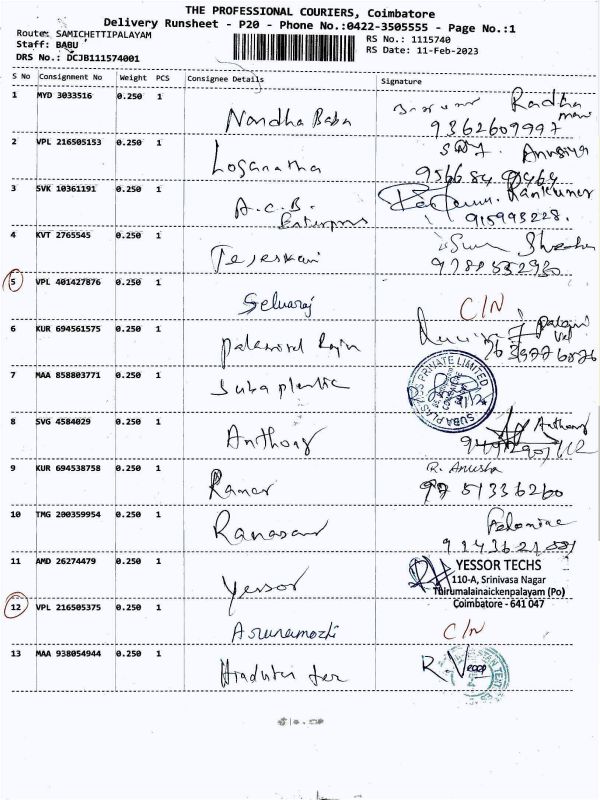 THE PROFESSIONAL COURIERS, Coimbatore
Delivery Runsheet - P20 - Phone No.:0422-3505555 - Page No.:1
Route: SAMICHETTIPALAYAM
Staff: BABU
DRS No.: DCJB111574001
RS No.: 1115740
RS Date: 11-Feb-2023
S No Consignment No Weight PCS Consignee Details Signature
1 MYD 3033516 0.250 1 Nandha Baba Radha
9362609997
2 VPL 216505153 0.250 1 Loganatha Anusiya
3 SVK 10361191 0.250 1 A.C.B. Ramkumar
Enterprises 915993228.
4 KVT 2765545 0.250 1
5 VPL 401427876 0.250 1 Selvaraj C/N
6 KUR 694561575 0.250 1 Palani
Vel
7 MAA 858803771 0.250 1 Suba plastic SUBA PLASTICS PRIVATE LIMITED
8 SVG 4584029 0.250 1 Anthony Anthony
9 KUR 694538758 0.250 1 R. Anusha
97 51336260
10 TMG 200359954 0.250 1
11 AMD 26274479 0.250 1 Yessor YESSOR TECHS
110-A, Srinivasa Nagar
Thirumalainaickenpalayam (Po)
Coimbatore - 641 047
12 VPL 216505375 0.250 1 Arunamozhi C/N
13 MAA 938054944 0.250 1